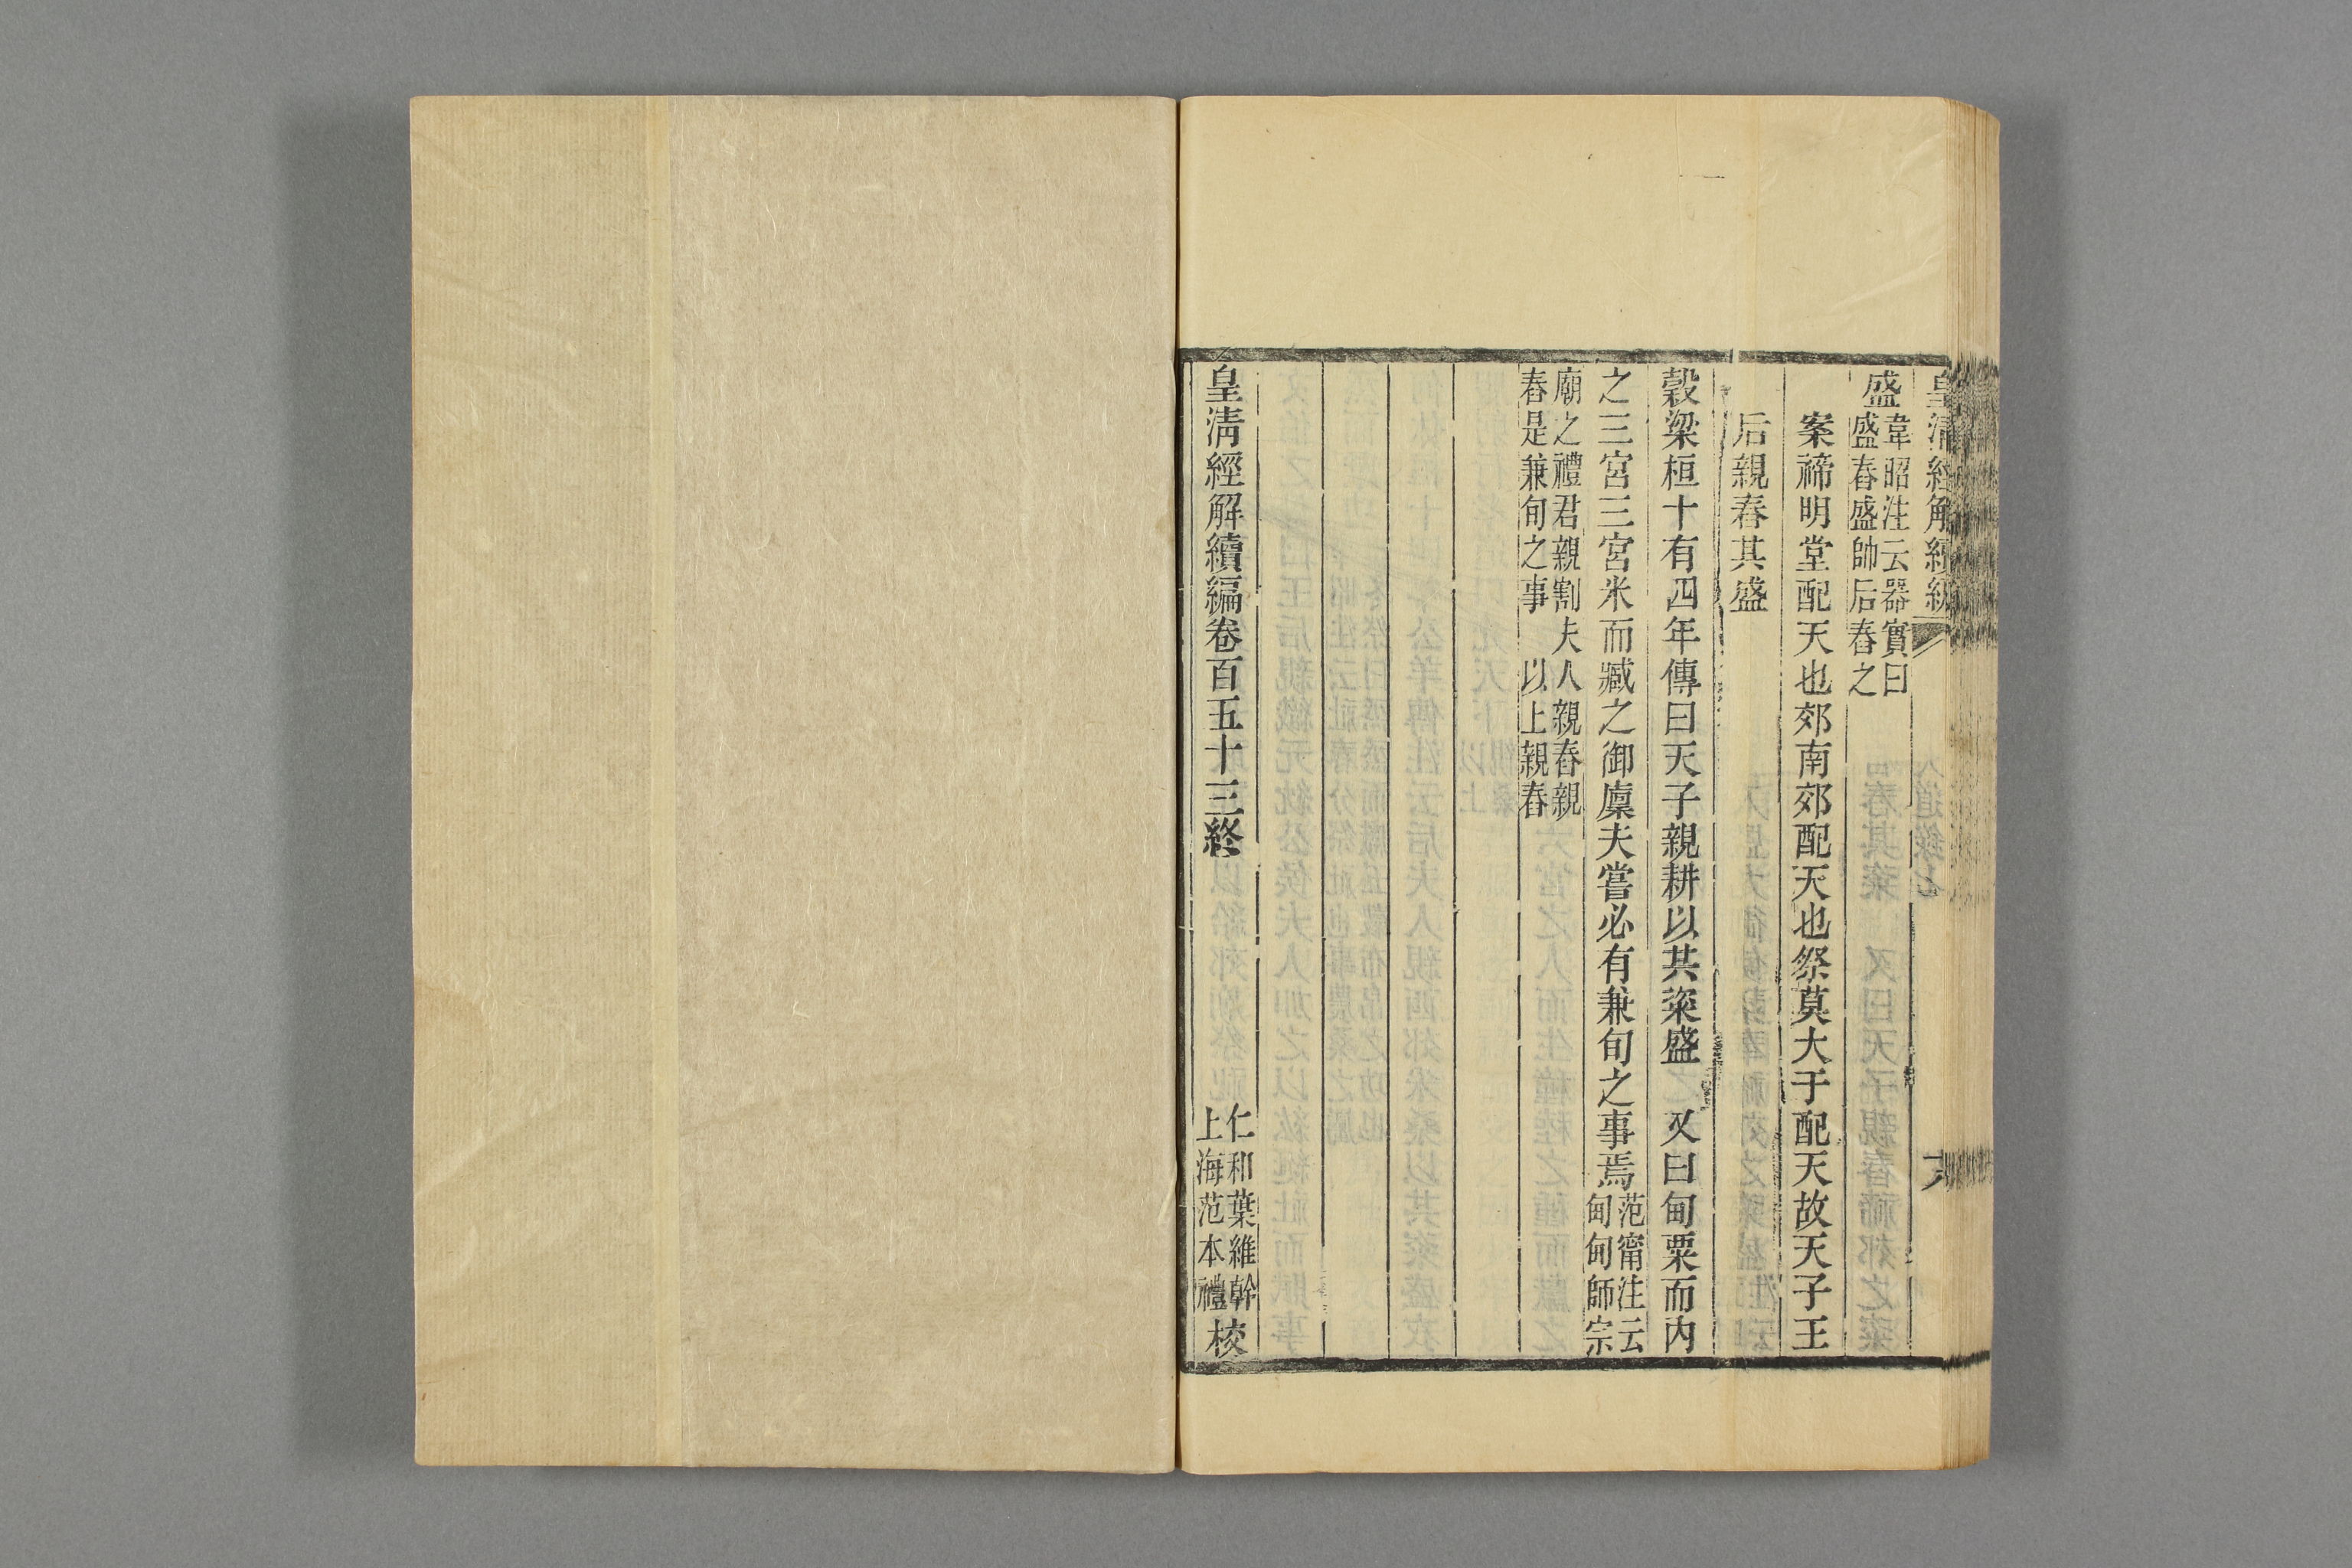 皇清經解續編
盛韋昭注云器實曰
盛舂盛帥后舂之
案禘明堂配天也郊南郊配天也祭莫大于配天故天子王
后親舂其盛
穀梁桓十有四年傳曰天子親耕以共粢盛 又曰甸粟而內
之三宮三宮米而臧之御廩夫嘗必有兼旬之事焉范甯注云
甸甸師宗
廟之禮君親割夫人親舂親
舂是兼旬之事 以上親舂
皇清經解續編卷百五十三終
仁和葉維幹
上海范本禮
校